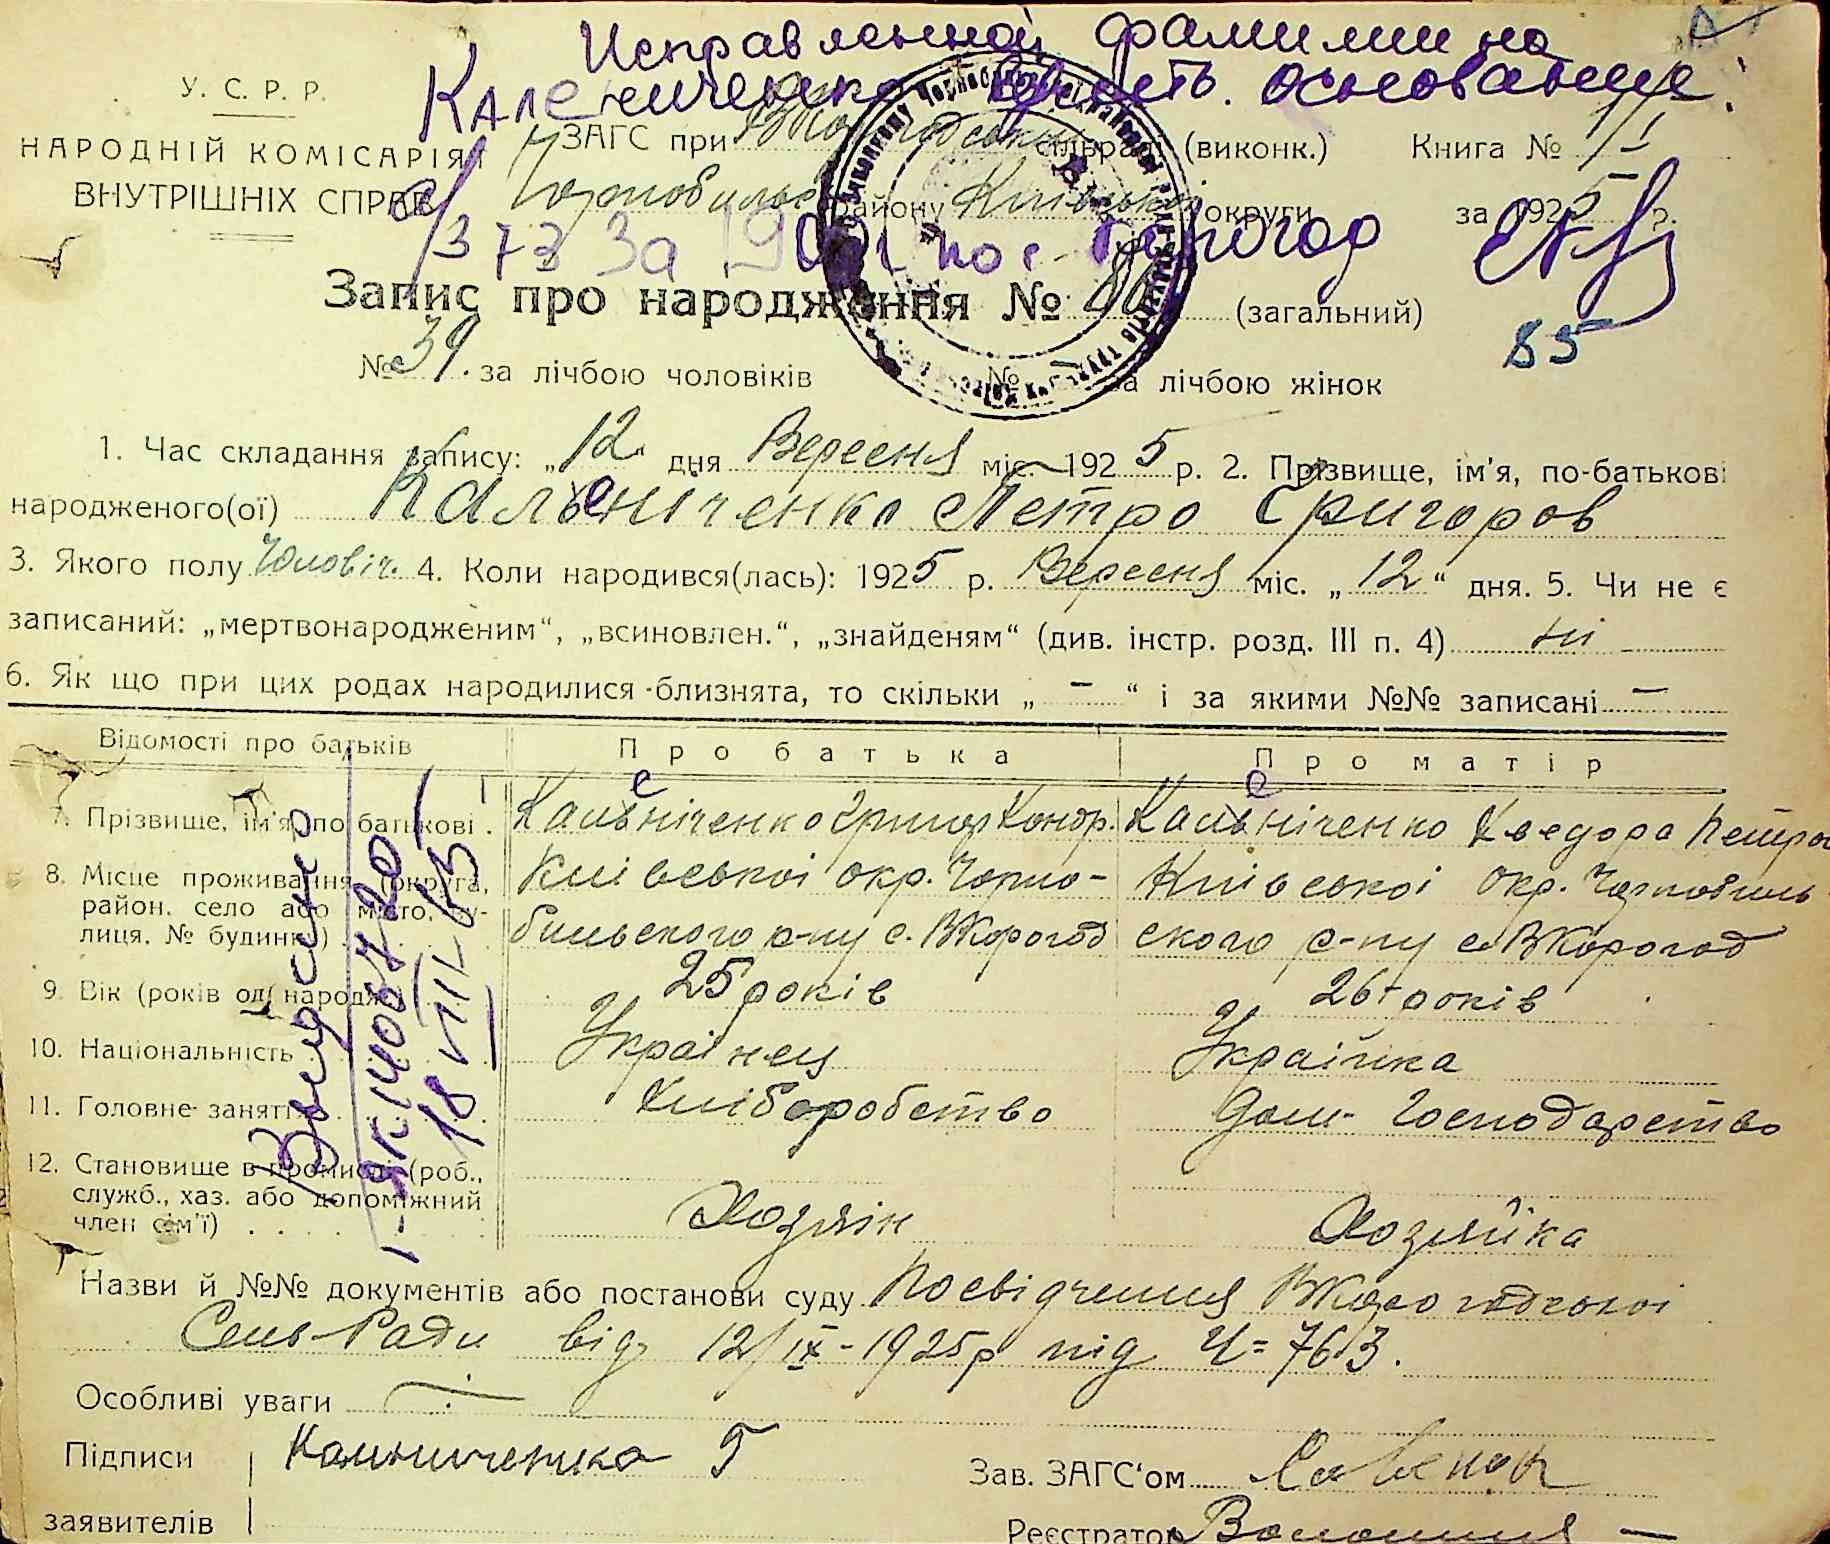 Исправленной фамилии на
Калениченко верить. основание:
У. С. Р. Р.
НАРОДНІЙ КОМІСАРІЯТ
ВНУТРІШНІХ СПРАВ
ЗАГС при ВКорогодській сільраді (виконк.) Книга № 1/I
Чорнобильс району Київської округи за 1925 р.
а/з 73 за 190 по с Корогод
Запис про народження № (загальний)
85
№ 39. за лічбою чоловіків № за лічбою жінок
1. Час складання запису: „12“ дня Вересня міс. 1925 р. 2. Прізвище, ім'я, по-батькові
народженого(ої) Каленіченко Петро Григоров
3. Якого полу Чоловіч. 4. Коли народився(лась): 1925 р. Вересня міс. „12“ дня. 5. Чи не є
записаний: „мертвонародженим“, „всиновлен.“, „знайденям“ (див. інстр. розд. III п. 4) ні
6. Як що при цих родах народилися близнята, то скільки „ – “ і за якими №№ записані –
Відомості про батьків Про батька Про матір
7. Прізвище, ім'я, по батькові . Каленіченко Григор Кондр. Каленіченко Хведора Петро
8. Місце проживання (округа, район, село або місто, вулиця, № будинку) . Київської окр. Чорно-
бильского р-ну с. ВКорогод
Київської окр. Чорнобиль
ского р-ну с. ВКорогод
9. Вік (років од народж.) 25 років 26 років
10. Національність Украінец Украінка
11. Головне заняття Хліборобство Дом. Господарство
12. Становище в промислі (роб., служб., хаз. або допоміжний член сім'ї) Хозяін Хозяйка
Выдано
I-ЯК 1408420
18 VIII
Назви й №№ документів або постанови суду Посвідчення ВКорогодської
Сель-Ради від 12/IX-1925р під Ч=763.
Особливі уваги
Підписи Калниченко Г Зав. ЗАГС'ом Савенок
заявителів Реєстратор